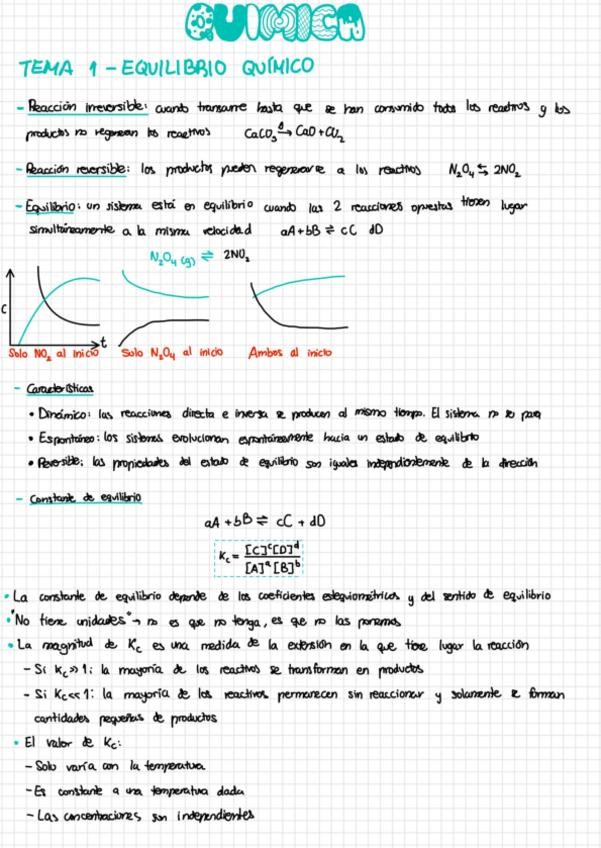 QUIMICA
TEMA 1 - EQUILIBRIO QUÍMICO
- Reacción irreversible: cuando transcurre hasta que se han consumido todos los reactivos y los
productos no regeneran los reactivos CaCO₃ →Δ CaO + CO₂
- Reacción reversible: los productos pueden regenerarse a los reactivos N₂O₄ ⇆ 2NO₂
- Equilibrio: un sistema está en equilibrio cuando las 2 reacciones opuestas tienen lugar
simultáneamente a la misma velocidad aA + bB ⇌ cC dD
N₂O₄ (g) ⇌ 2NO₂
C
t
Solo NO₂ al inicio Solo N₂O₄ al inicio Ambos al inicio
- Características
• Dinámico: las reacciones directa e inversa se producen al mismo tiempo. El sistema no se para
• Espontáneo: los sistemas evolucionan espontáneamente hacia un estado de equilibrio
• Reversible: las propiedades del estado de equilibrio son iguales independientemente de la dirección
- Constante de equilibrio
aA + bB ⇌ cC + dD
Kc = [C]ᶜ[D]ᵈ
[A]ᵃ[B]ᵇ
• La constante de equilibrio depende de los coeficientes estequiométricos y del sentido de equilibrio
• "No tiene unidades" → no es que no tenga, es que no las ponemos
• La magnitud de Kc es una medida de la extensión en la que tiene lugar la reacción
- Si Kc >> 1: la mayoría de los reactivos se transforman en productos
- Si Kc << 1: la mayoría de los reactivos permanecen sin reaccionar y solamente se forman
cantidades pequeñas de productos
• El valor de Kc:
- Solo varía con la temperatura
- Es constante a una temperatura dada
- Las concentraciones son independientes